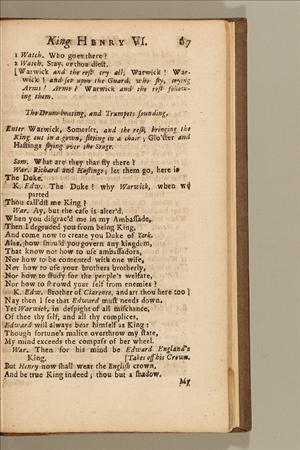 King HENRY VI. 67
1 Watch. Who goes there?
2 Watch. Stay, or thou diest.
[Warwick and the rest cry all, Warwick! War-
wick! and set upon the Guard, who fly, crying
Arms! Arms! Warwick and the rest follow-
ing them.
The Drum beating, and Trumpets sounding,
Enter Warwick, Somerset, and the rest, bringing the
King out in a gown, sitting in a chair; Glo'ster and
Hastings flying over the Stage.
Som. What are they that fly there?
War. Richard and Hastings; let them go, here is
The Duke.
K. Edw. The Duke! why Warwick, when we
parted
Thou call'dst me King?
War. Ay, but the case is alter'd.
When you disgrac'd me in my Ambassade,
Then I degraded you from being King,
And come now to create you Duke of York.
Alas, how should you govern any kingdom,
That know not how to use ambassadors,
Nor how to be contented with one wife,
Nor how to use your brothers brotherly,
Nor how to study for the people's welfare,
Nor how to shrowd your self from enemies?
K. Edw. Brother of Clarence, and art thou here too?
Nay then I see that Edward must needs down.
Yet Warwick, in despight of all mischance,
Of thee thy self, and all thy complices,
Edward will always bear himself as King:
Though fortune's malice overthrow my state,
My mind exceeds the compass of her wheel.
War. Then for his mind be Edward England's
King. [Takes off his Crown.
But Henry now shall wear the English crown,
And be true King indeed; thou but a shadow.
My